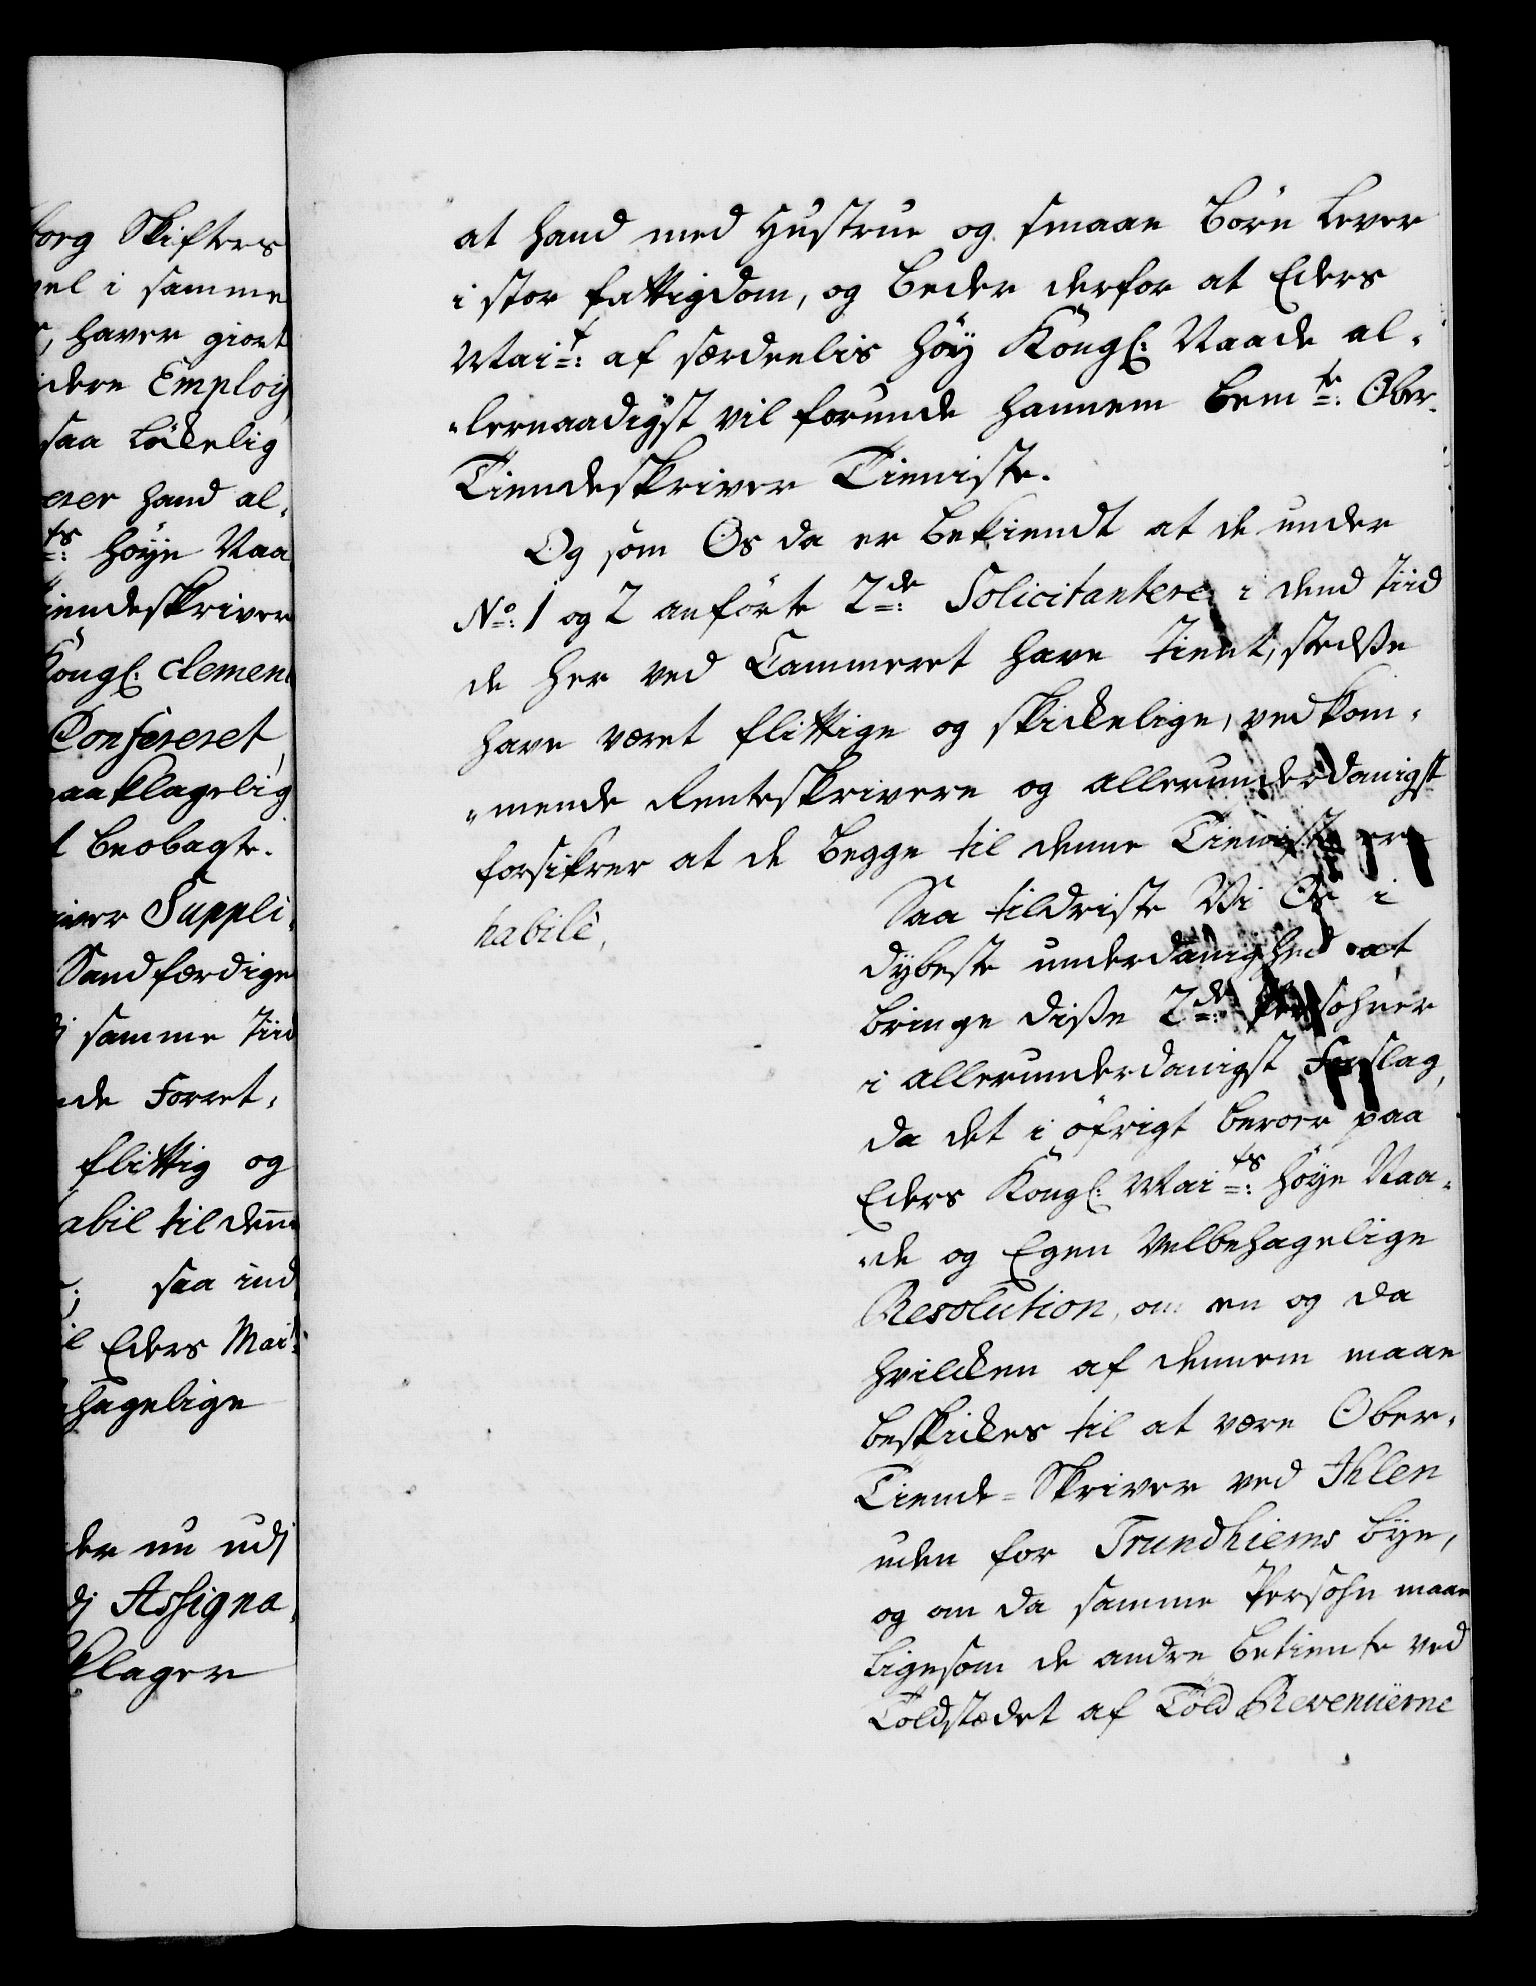 borg Skifters
vel i samme
, haver giort
idere Employ
saa lökelig
erer hand al-
ts: höye Naa
iendeskriver
Kongl: clemen
Confereret,
aaklagelig
t beobagte.
iver Suppli-
Sandfærdige
i samme Tiid
nde Forret-
flittig og
abil til denne
; saa ind
il Eders Mait:
hagelige
der nu udj
dj Assigna-
klager
at hand med Hustrue og smaae Börn lever
i stor fattigdom, og beder derfor at Eders
Mait: af særdeelis höy Kongl: Naade al-
lernaadigst vil forunde hannem bemte: Ober-
Tiendeskriver Tieniste.
Og som Os da er bekiendt at de under
No: 1 og 2 anförte 2de: Solicitantere i dend Tiid
de her ved Cammeret have tient, stedße
have været flittige og skickelige, vedkom-
mende Renteskrivere og allerunderdanigst
forsikrer at de begge til denne Tieniste ere
habile,
Saa tildriste Vi Os i
dybeste underdanighed at
bringe diße 2de: Persohner
i allerunderdanigst Forslag,
da det i öfrigt beroer paa
Eders Kongl: Maits: höye Naa-
de og Egen Velbehagelige
Resolution, om en og da
hvilcken af dennem maae
beskickes til at være Ober-
Tiende-Skriver ved Ihlen
uden for Trundhiems bye,
og om da samme Persohn maae
ligesom de andre betiente ved
Toldstædet af Told Revenüerne